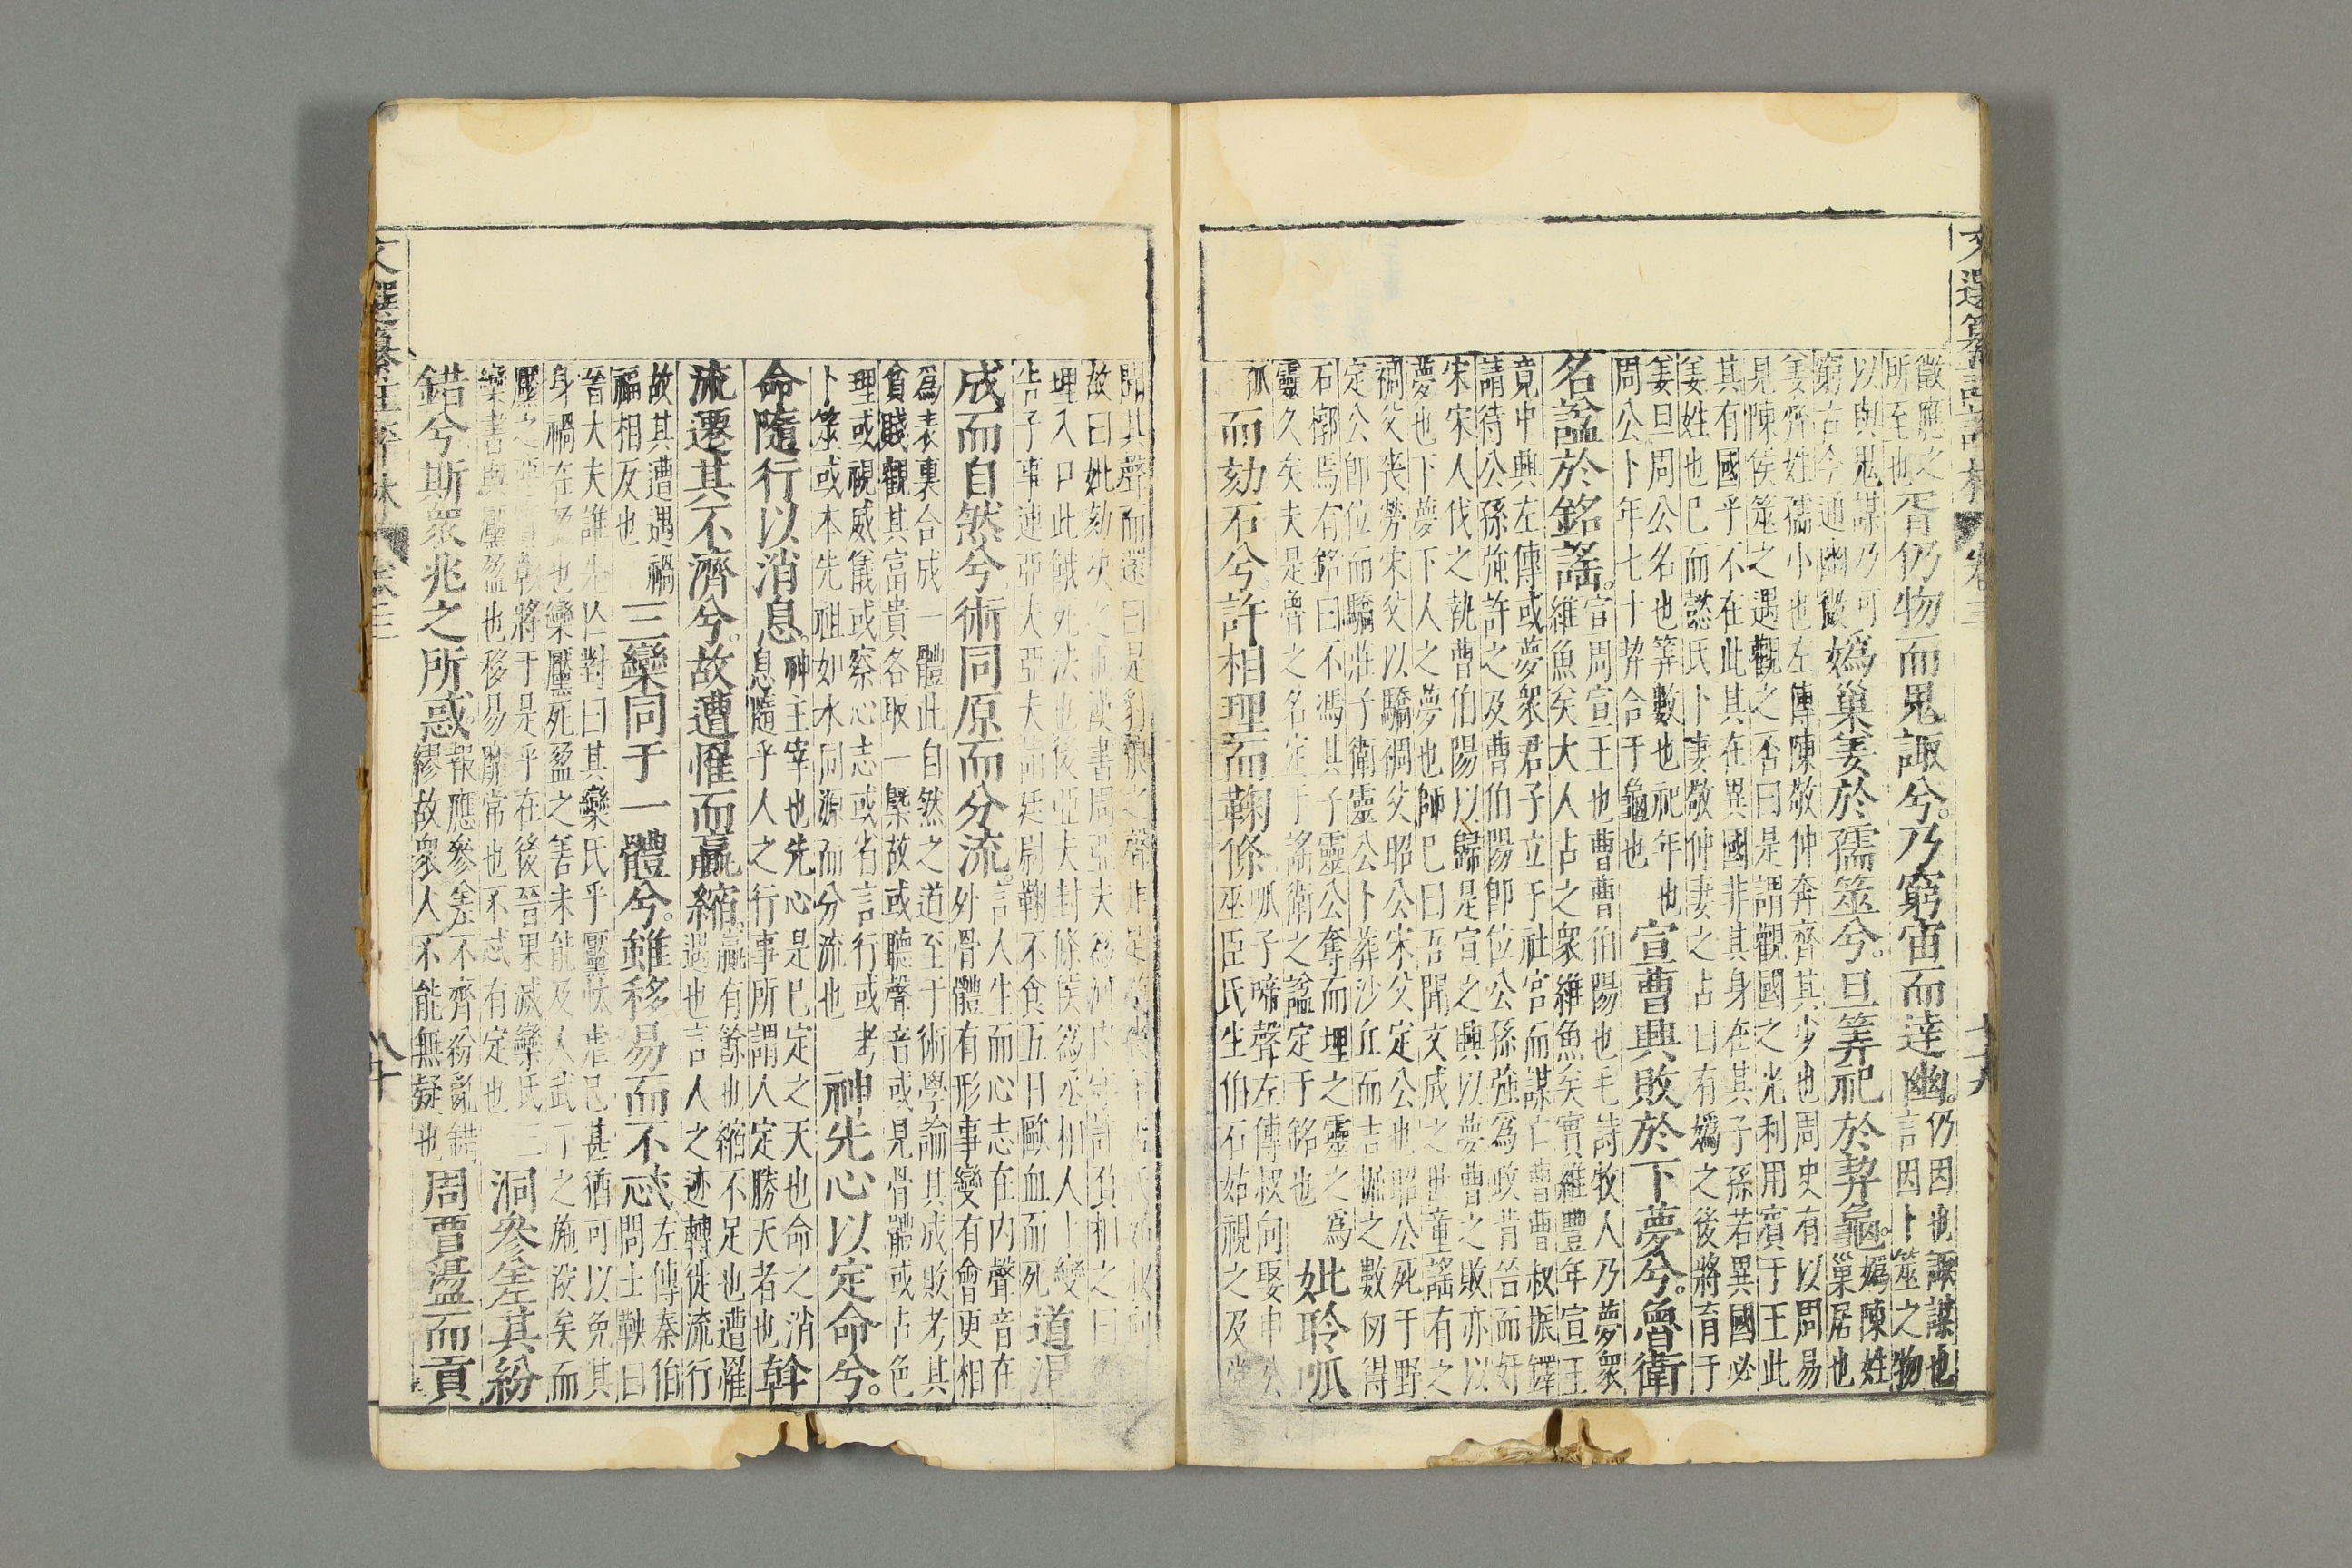 文選纂註評林 卷三
徵應之
所至也
胥仍物而鬼諏兮。乃窮宙而達幽。
仍因也諏謀也
言因卜筮之物
以與鬼謀乃可
窮古今通幽微
媯巢姜於孺筮兮。旦筭祀於挈龜。
媯陳姓
巢居也
姜齊姓孺小也左傳陳敬仲奔齊其少也周史有以周易
見陳侯筮之遇觀之否曰是謂觀國之光利用賓于王此
其有國乎不在此其在異國非其身在其子孫若異國必
姜姓也巳而懿氏卜妻敬仲妻之占曰有媯之後將育于
姜旦周公名也筭數也祀年也
周公卜年七十挈合于龜也
宣曹興敗於下夢兮。魯衛
名諡於銘謠。
宣周宣王也曹曹伯陽也毛詩牧人乃夢衆
維魚矣大人占之衆維魚矣實維豐年宣王
竟中興左傳或夢衆君子立于社宮而謀亡曹曹叔振鐸
請待公孫強許之及曹伯陽卽位公孫強爲政背晉而奸
宋宋人伐之執曹伯陽以歸是宣之興以夢曹之敗亦以
夢也下夢下人之夢也師巳曰吾聞文成之世童謠有之
裯父喪勞宋父以驕裯父昭公宋父定公也昭公死于野
定公卽位而驕莊子衛靈公卜葬沙丘而吉掘之數仞得
石槨焉有銘曰不馮其子靈公奪而埋之靈之爲
靈久矣夫是魯之名定于謠衛之諡定于銘也
妣聆呱
而劾石兮。許相理而鞠條
呱子啼聲左傳叔向娶申公
巫臣氏生伯石姑視之及堂
聞其聲而還曰是豺狼之聲
故曰妣劾 漢書周亞夫爲河內守許負相之曰
理入口此餓死法也後亞夫封條侯爲丞相人上變
告子事連亞夫亞夫詣廷尉鞠不食五日歐血而死
道混
成而自然兮術同原而分流。
言人生而心志在内聲音在
外骨體有形事變有會更相
爲表裏合成一體此自然之道至于術學論其成敗考其
貧賤觀其富貴各取一槩故或聽聲音或見骨體或占色
理或視威儀或察心志或省言行或考
卜筮或本先祖如水同源而分流也
神先心以定命兮。
命隨行以消息。
神主宰也先心是巳定之天也命之消
息隨乎人之行事所謂人定勝天者也
斡
流遷其不濟兮。故遭罹而嬴縮
嬴有餘也縮不足也遭罹
遇也言人之迹轉徙流行
故其遭遇禍
福相反也
三欒同于一體兮。雖移易而不忒
左傳秦伯
問士鞅曰
晉大夫誰先亡對曰其欒氏乎黶汰虐巳甚猶可以免其
身禍在盈也欒黶死盈之善未能及人武子之施沒矣而
黶之 將于是乎在後晉果滅欒氏三
欒書與黶盈也移易 常也不忒有定也
洞參差其紛
錯兮斯衆兆之所惑。
報應參差不齊紛亂錯
繆故衆人不能無疑也
周賈盪而貢
八十